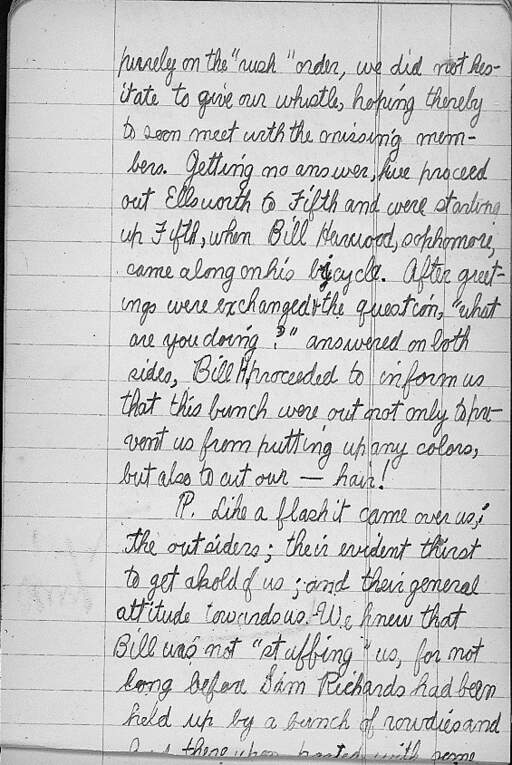 purely on the "rush" order, we did not hes-
itate to give our whistle, hoping thereby
to soon meet with the missing mem-
bers. Getting no answer, we proceed
out Ellsworth to Fifth and were starting
up Fifth, when Bill Harwood, sophomore,
came along on his bicycle. After greet-
ings were exchanged & the question, "what
are you doing?" answered on both
sides, Bill H. proceeded to inform us
that this bunch were out not only to pre-
vent us from putting up any colors,
but also to cut our — hair!
P. Like a flash it came over us;
the outsiders; their evident thirst
to get ahold of us; and their general
attitude towards us. We knew that
Bill was not "stuffing" us, for not
long before Sam Richards had been
held up by a bunch of rowdies and
thereupon parted with some